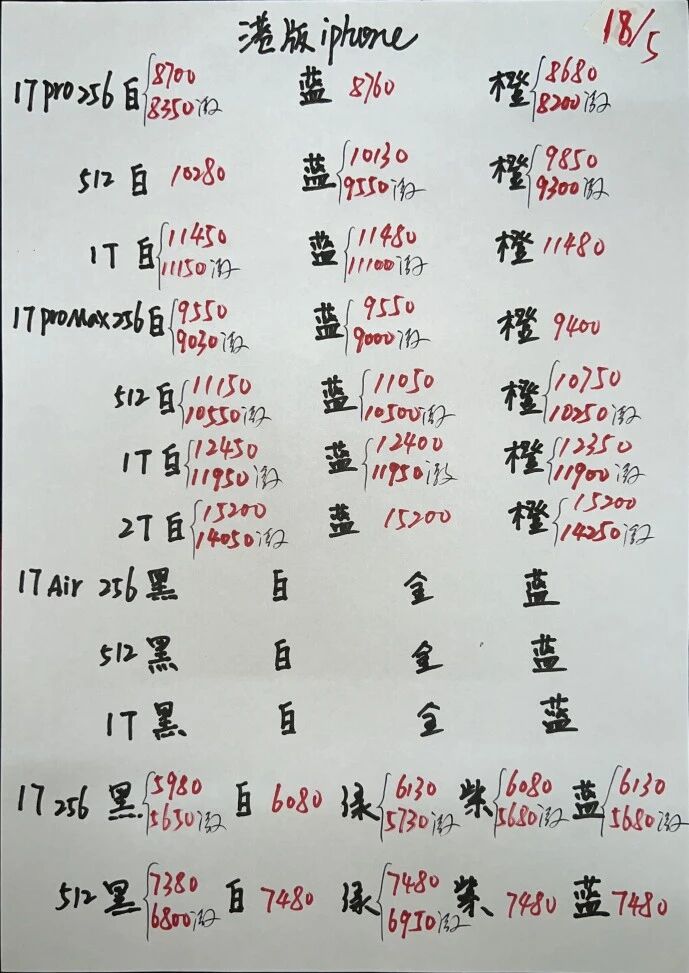 港版iphone 18/5
17pro256 白 8700 蓝 8760 橙 8680
8350激 8200激
512 白 10280 蓝 10130 橙 9850
9550激 9300激
1T 白 11450 蓝 11480 橙 11480
11150激 11100激
17proMax256 白 9550 蓝 9550 橙 9400
9030激 9000激
512 白 11150 蓝 11050 橙 10750
10550激 10500激 10250激
1T 白 12450 蓝 12400 橙 12350
11950激 11950激 11900激
2T 白 15200 蓝 15200 橙 15200
14050激 14250激
17Air 256 黑 白 金 蓝
512 黑 白 金 蓝
1T 黑 白 金 蓝
17 256 黑 5980 白 6080 绿 6130 紫 6080 蓝 6130
5650激 5730激 5680激 5680激
512 黑 7380 白 7480 绿 7480 紫 7480 蓝 7480
6800激 6950激